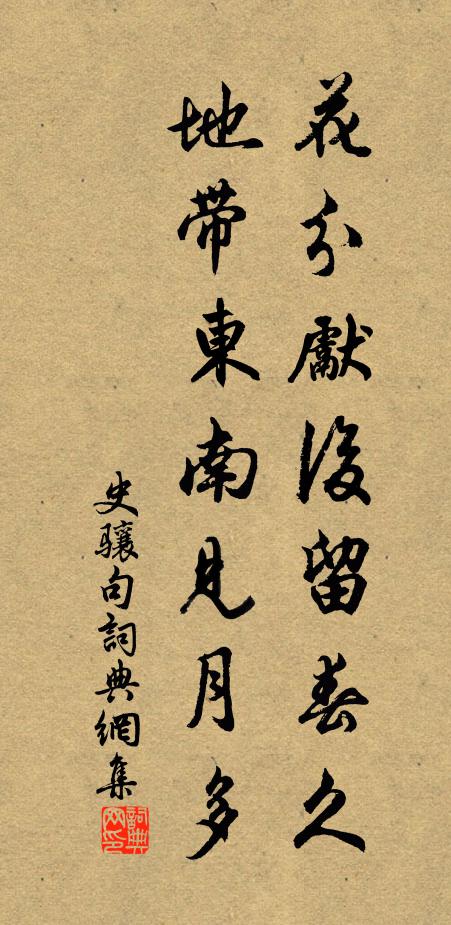 花分獻後留春久
地帶東南見月多
史骧句詞典網集
詞典網印